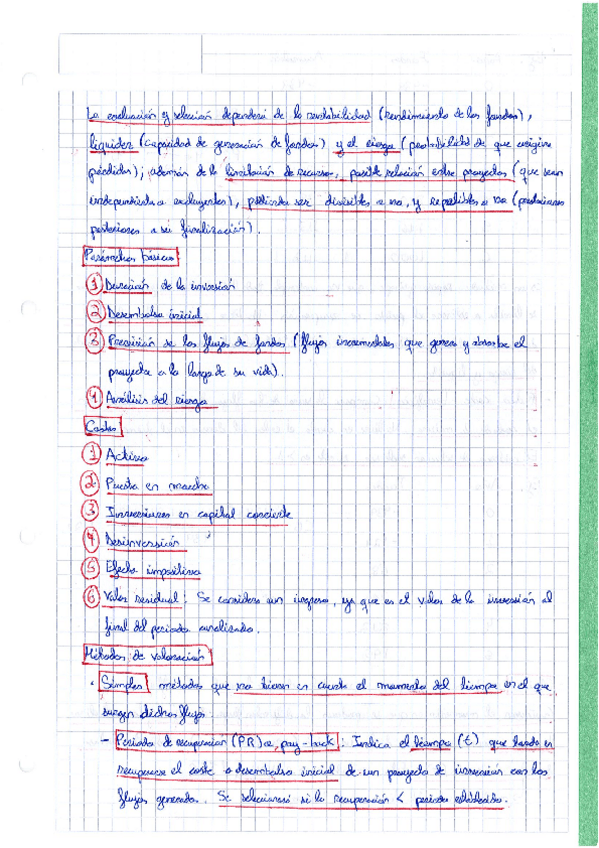 La evaluación y selección dependerá de la rentabilidad (rendimiento de los fondos),
liquidez (capacidad de generación de fondos) y el riesgo (probabilidad de que origine
pérdidas); además de la limitación de recursos, posible relación entre proyectos (que sean
independientes o excluyentes), pudiendo ser divisibles o no, y repetibles o no (
posteriores a su finalización).
Parámetros básicos
1 Duración de la inversión
2 Desembolso inicial
3 Previsión de los flujos de fondos (flujos incrementales que genera y absorbe el
proyecto a lo largo de su vida).
4 Análisis del riesgo
Costes
1 Activos
2 Puesta en marcha
3 Inversiones en capital corriente
4 Desinversión
5 Efecto impositivo
6 Valor residual: Se considera un ingreso, ya que es el valor de la inversión al
final del periodo analizado.
Métodos de valoración
· Simples métodos que no tienen en cuenta el momento del tiempo en el que
surgen dichos flujos.
- Periodo de recuperación (PR) o, pay-back: Indica el tiempo (t) que tarda en
recuperarse el coste o desembolso inicial de un proyecto de inversión con los
flujos generados. Se seleccionará si la recuperación < periodo establecido.